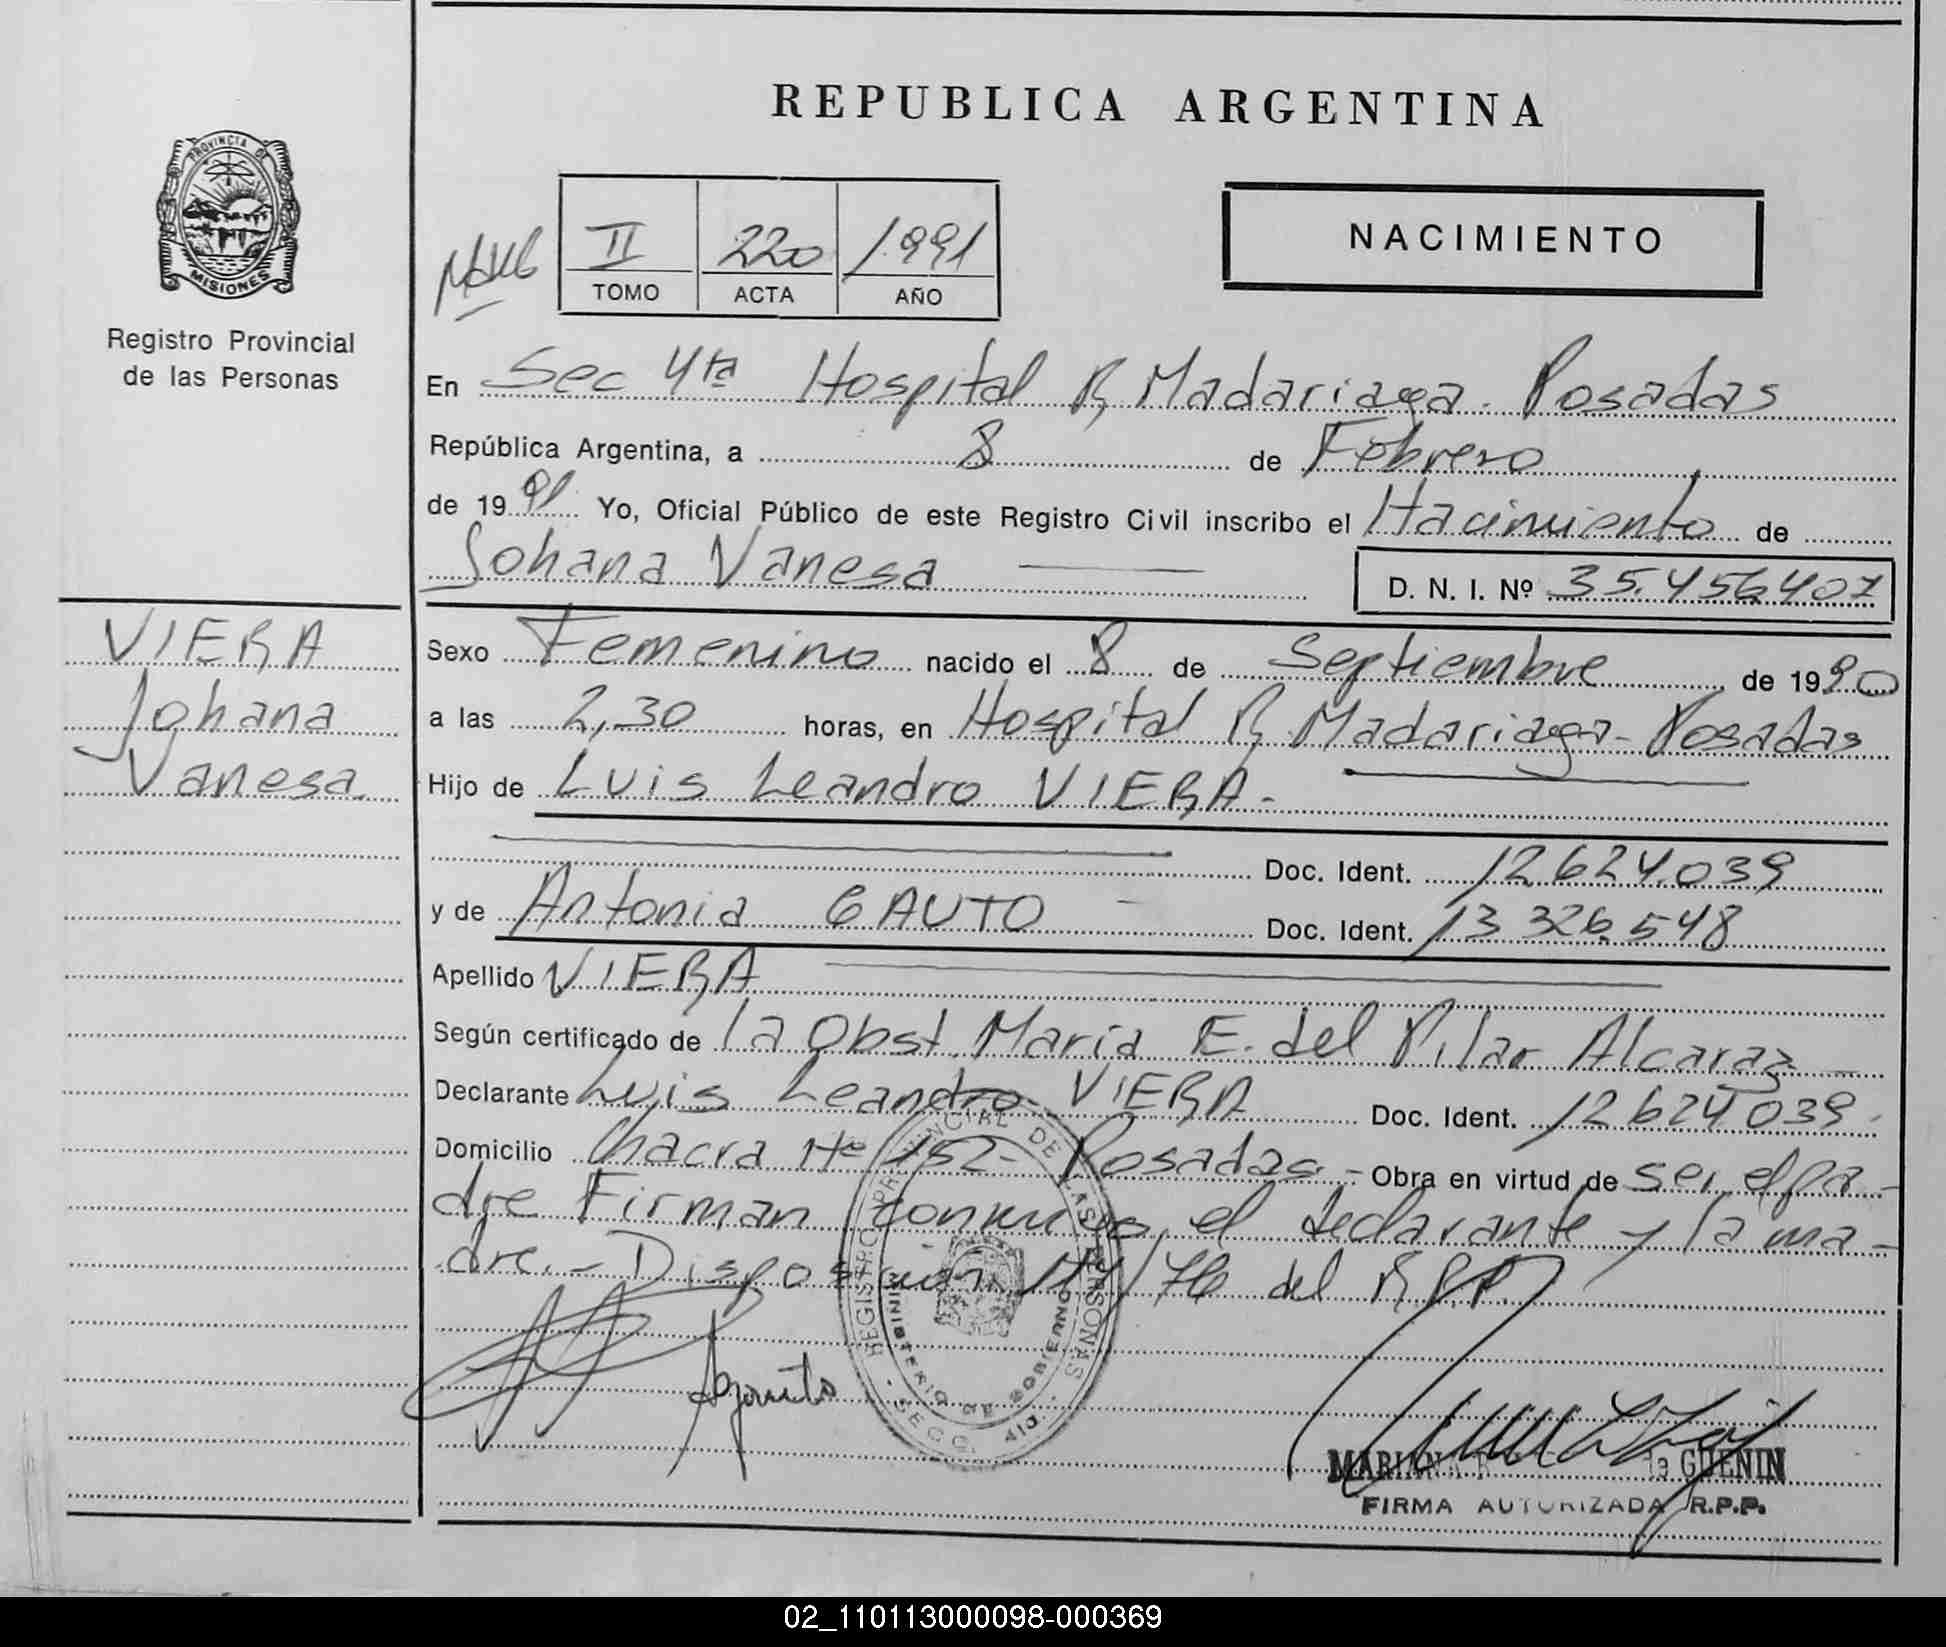 REPUBLICA ARGENTINA
PROVINCIA DE MISIONES
Registro Provincial
de las Personas
II 220 1991
TOMO ACTA AÑO
NACIMIENTO
En Sec 4ta Hospital R, Madariaga. Posadas
República Argentina, a 8 de Febrero
de 1991 Yo, Oficial Público de este Registro Civil inscribo el Nacimiento de
Johana Vanesa
D. N. I. Nº 35.456.407
VIERA
Johana
Vanesa.
Sexo Femenino nacido el 8 de Septiembre de 1990
a las 2,30 horas, en Hospital R, Madariaga - Posadas
Hijo de Luis Leandro VIERA -
Doc. Ident. 12.624.039
y de Antonia GAUTO - Doc. Ident. 13.326.548
Apellido VIERA
Según certificado de la Obst. Maria E. del Pilar Alcaraz
Declarante Luis Leandro VIERA Doc. Ident. 12624039.
Domicilio Chacra Nº 152- Posadas.- Obra en virtud de ser el pa-
dre Firman conmigo, el declarante y la ma-
dre.- Disposición 14/76 del R.P.P.
REGISTRO PROVINCIAL DE LAS PERSONAS
MINISTERIO DE GOBIERNO
SECC. 4ta.
Agauto
MARIANA GUENIN
FIRMA AUTORIZADA R.P.P.
02_110113000098-000369